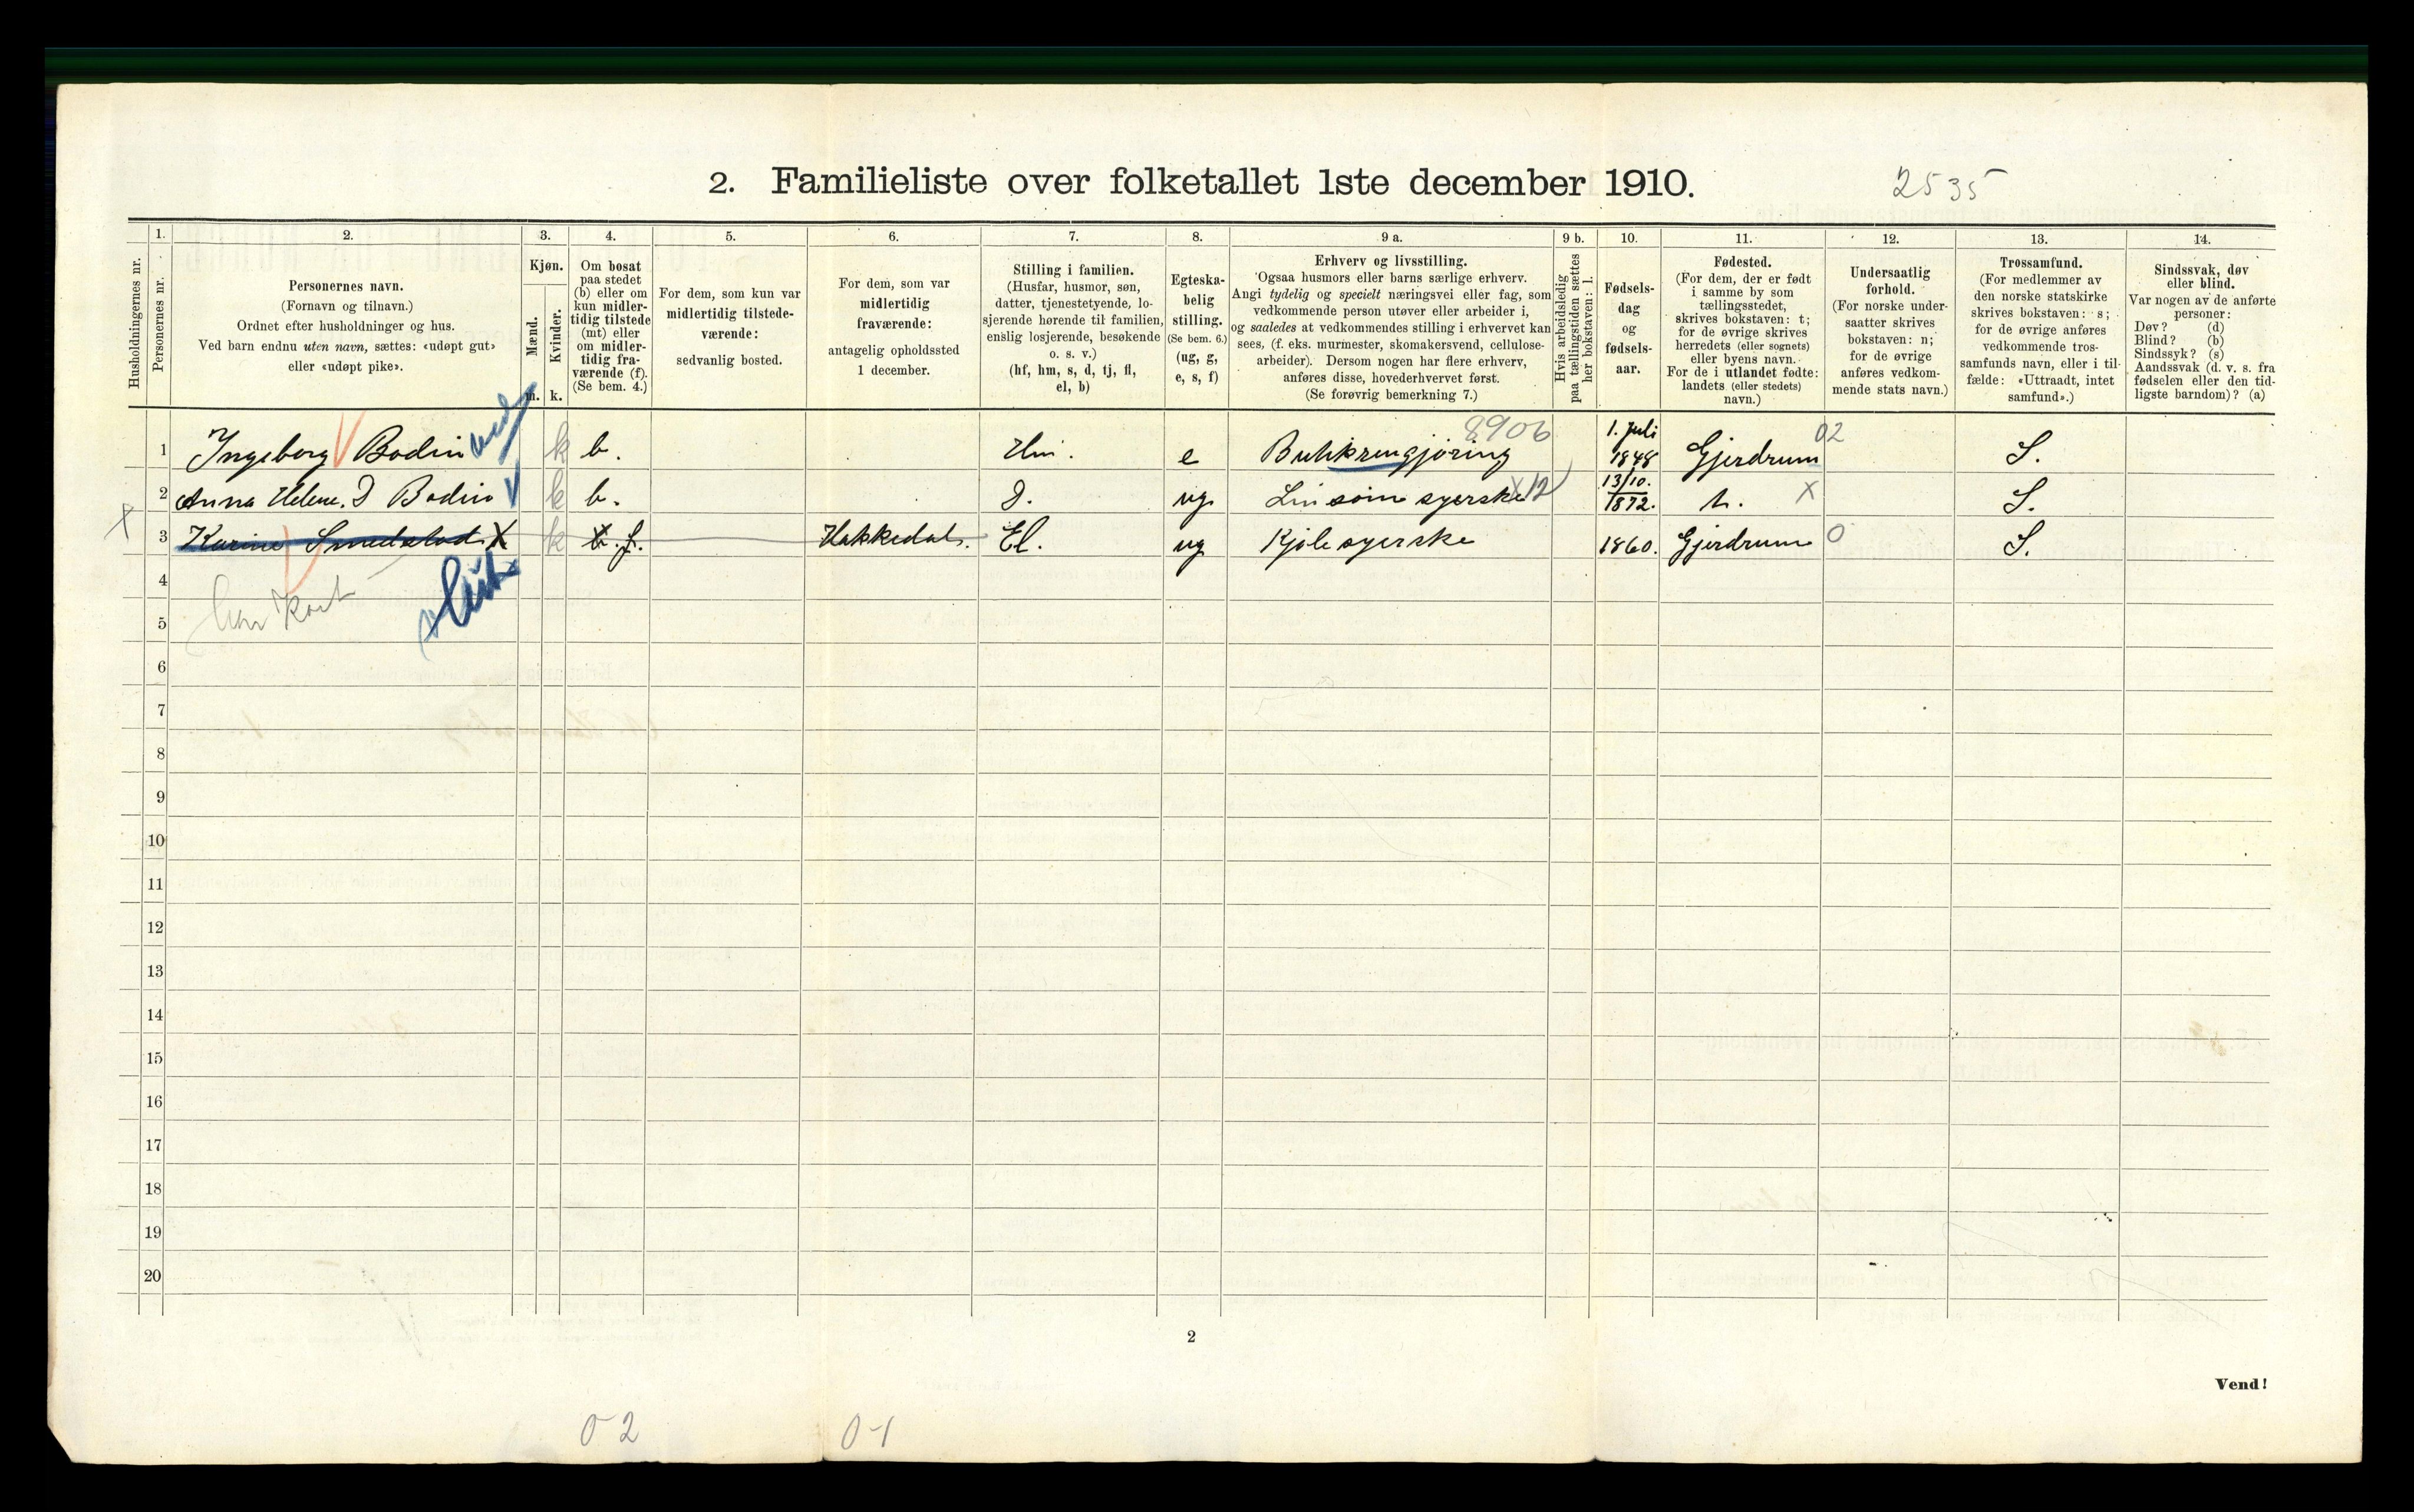 2. Familieliste over folketallet 1ste december 1910.
2535
1. 2. 3. 4. 5. 6. 7. 8. 9 a. 9 b. 10. 11. 12. 13. 14.
Husholdningernes nr.
Personernes nr.
Personernes navn.
(Fornavn og tilnavn.)
Ordnet efter husholdninger og hus.
Ved barn endnu uten navn, sættes: «udøpt gut»
eller «udøpt pike».
Kjøn.
Mænd.
Kvinder.
m. k.
Om bosat
paa stedet
(b) eller om
kun midler-
tidig tilstede
(mt) eller
om midler-
tidig fra-
værende (f).
(Se bem. 4.)
For dem, som kun var
midlertidig tilstede-
værende:
sedvanlig bosted.
For dem, som var
midlertidig
fraværende:
antagelig opholdssted
1 december.
Stilling i familien.
(Husfar, husmor, søn,
datter, tjenestetyende, lo-
sjerende hørende til familien,
enslig losjerende, besøkende
o. s. v.)
(hf, hm, s, d, tj, fl,
el, b)
Egteska-
belig
stilling.
(Se bem. 6.)
(ug, g,
e, s, f)
Erhverv og livsstilling.
Ogsaa husmors eller barns særlige erhverv.
Angi tydelig og specielt næringsvei eller fag, som
vedkommende person utøver eller arbeider i,
og saaledes at vedkommendes stilling i erhvervet kan
sees, (f. eks. murmester, skomakersvend, cellulose-
arbeider). Dersom nogen har flere erhverv,
anføres disse, hovederhvervet først.
(Se forøvrig bemerkning 7.)
Hvis arbeidsledig
paa tællingstiden sættes
her bokstaven: l.
Fødsels-
dag
og
fødsels-
aar.
Fødested.
(For dem, der er født
i samme by som
tællingsstedet,
skrives bokstaven: t;
for de øvrige skrives
herredets (eller sognets)
eller byens navn.
For de i utlandet fødte:
landets (eller stedets)
navn.)
Undersaatlig
forhold.
(For norske under-
saatter skrives
bokstaven: n;
for de øvrige
anføres vedkom-
mende stats navn.)
Trossamfund.
(For medlemmer av
den norske statskirke
skrives bokstaven: s;
for de øvrige anføres
vedkommende tros-
samfunds navn, eller i til-
fælde: «Uttraadt, intet
samfund».)
Sindssvak, døv
eller blind.
Var nogen av de anførte
personer:
Døv? (d)
Blind? (b)
Sindssyk? (s)
Aandssvak (d. v. s. fra
fødselen eller den tid-
ligste barndom)? (a)
1 Ingeborg Bodin k b. Hm. e 8906 1. Juli 1848 Gjerdrum 02 S.
2 Anna Helene. D Bodin k b. D. ug. Linsøm syerske X12 13/10. 1872. t. X S.
X 3 Karine Smedstad X k b. f. Hakkedal. El. ug Kjolesyerske 1860. Gjerdrum 0 S.
4
har Kort
5
6
7
8
9
10
11
12
13
14
15
16
17
18
19
20
2
Vend!
0-2 0-1